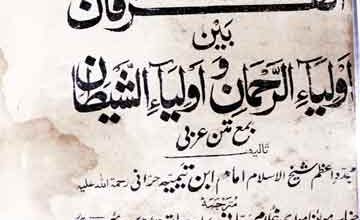 الفرقان
بین
اولیاءالرحمان و اولیاءالشیطان
بمع متن عربی
تالیف
مجدد اعظم شیخ الاسلام امام ابن تیمیہ حرانی رحمۃ اللہ علیہ
مترجمہ
غلام